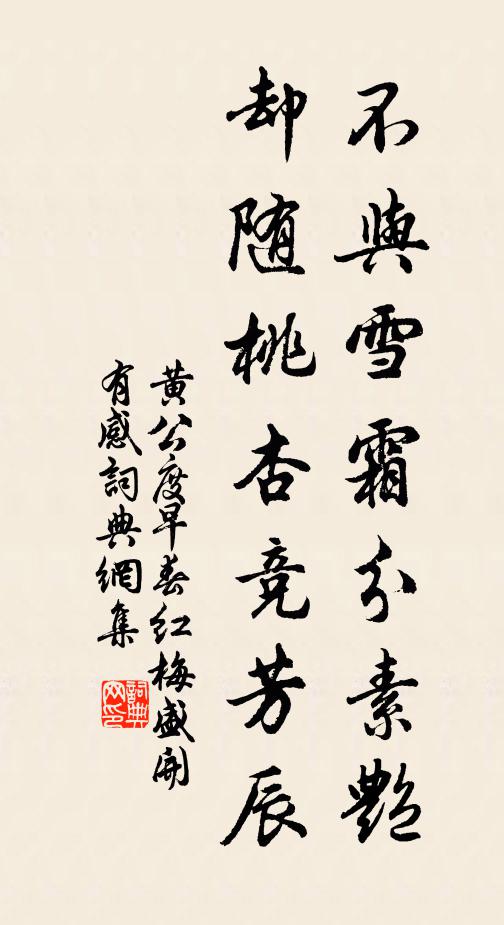 不與雪霜分素艷
却随桃杏竞芳辰
黄公度早春红梅盛開
有感詞典網集
詞典
网印